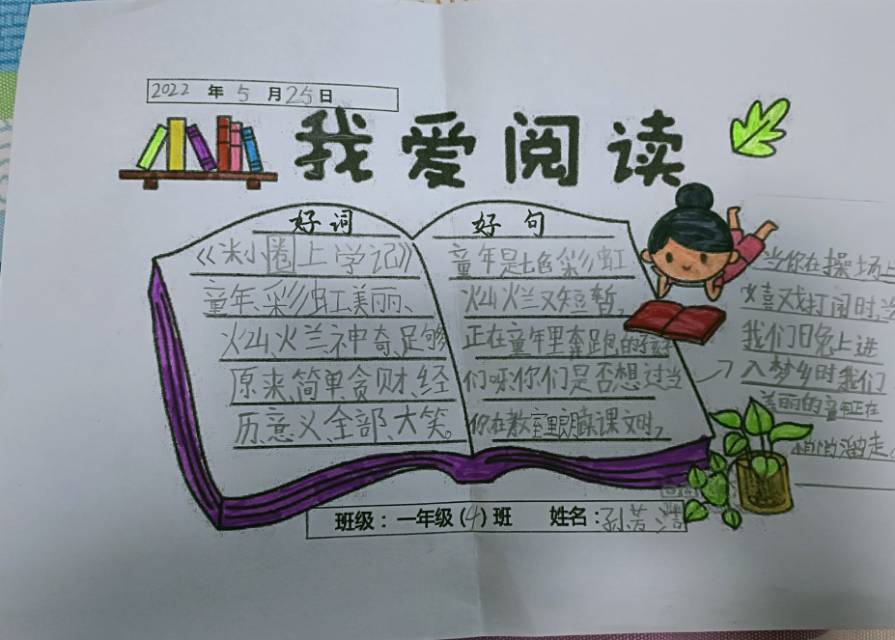 2022年5月25日
我爱阅读
好词
《米小圈上学记》
童年、彩虹、美丽、
火山、火兰、神奇、足够
原来、简单、贪财、经
历、意义、全部、大笑。
好句
童年是七色彩虹
灿烂又短暂,
正在童年里奔跑的孩子
们呀,你们是否想过当
你在教室里朗读课文时,
当你在操场上
嬉戏打闹时,当
我们日晚上进
入梦乡时我们
美丽的童年正在
悄悄溜走。
班级:一年级(4)班 姓名:孙芳浩